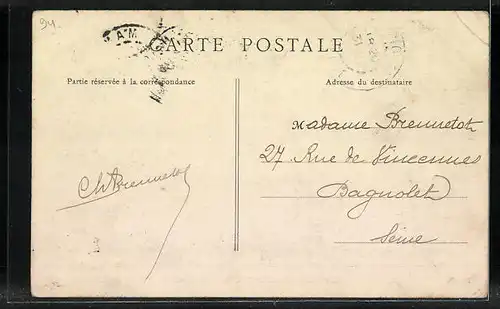 94.
CARTE POSTALE
Partie réservée à la correspondance
Adresse du destinataire
Madame Brennetot
27 Rue de Vincennes
Bagnolet
Seine
Ch Brennetot